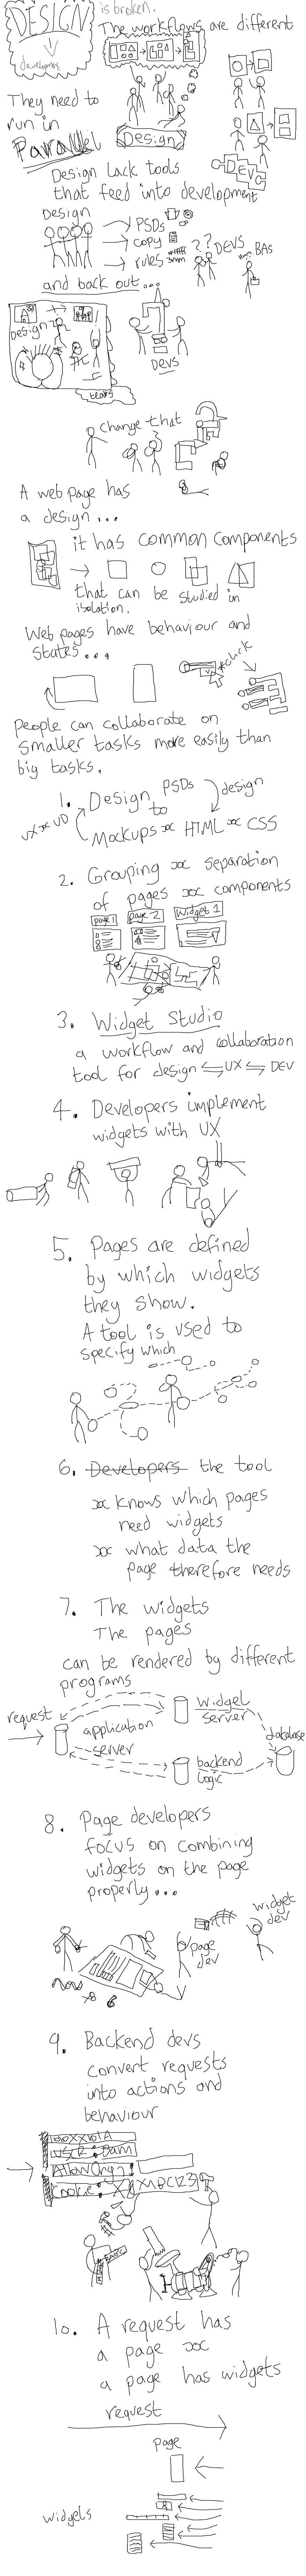 DESIGN is broken.
development
The workflows are different
They need to
run in
Parallel
Design
DEV
Design Lack tools
that feed into development
Design
PSDs
copy
rules
? ? DEVS
BAs
and back out...
Design
tears
Devs
change that
A web page has
a design...
it has common components
that can be studied in
isolation.
Web pages have behaviour and
states...
click
People can collaborate on
smaller tasks more easily than
big tasks.
1. Design PSDs
to
design
UX
UD
Mockups HTML CSS
2. Grouping separation
of pages components
page 1
page 2
widget 1
3. Widget Studio
a workflow and collaboration
tool for design UX DEV
4. Developers implement
widgets with UX
5. Pages are defined
by which widgets
they show.
A tool is used to
specify which
6. Developers the tool
knows which pages
need widgets
what data the
page therefore needs
7. The widgets
The pages
can be rendered by different
programs
request
application
server
widget
server
database
backend
logic
8. Page developers
focus on combining
widgets on the page
properly...
page
dev
widget
dev
9. Backend devs
convert requests
into actions and
behaviour
Cookie:
10. A request has
a page
a page has widgets
request
page
widgets